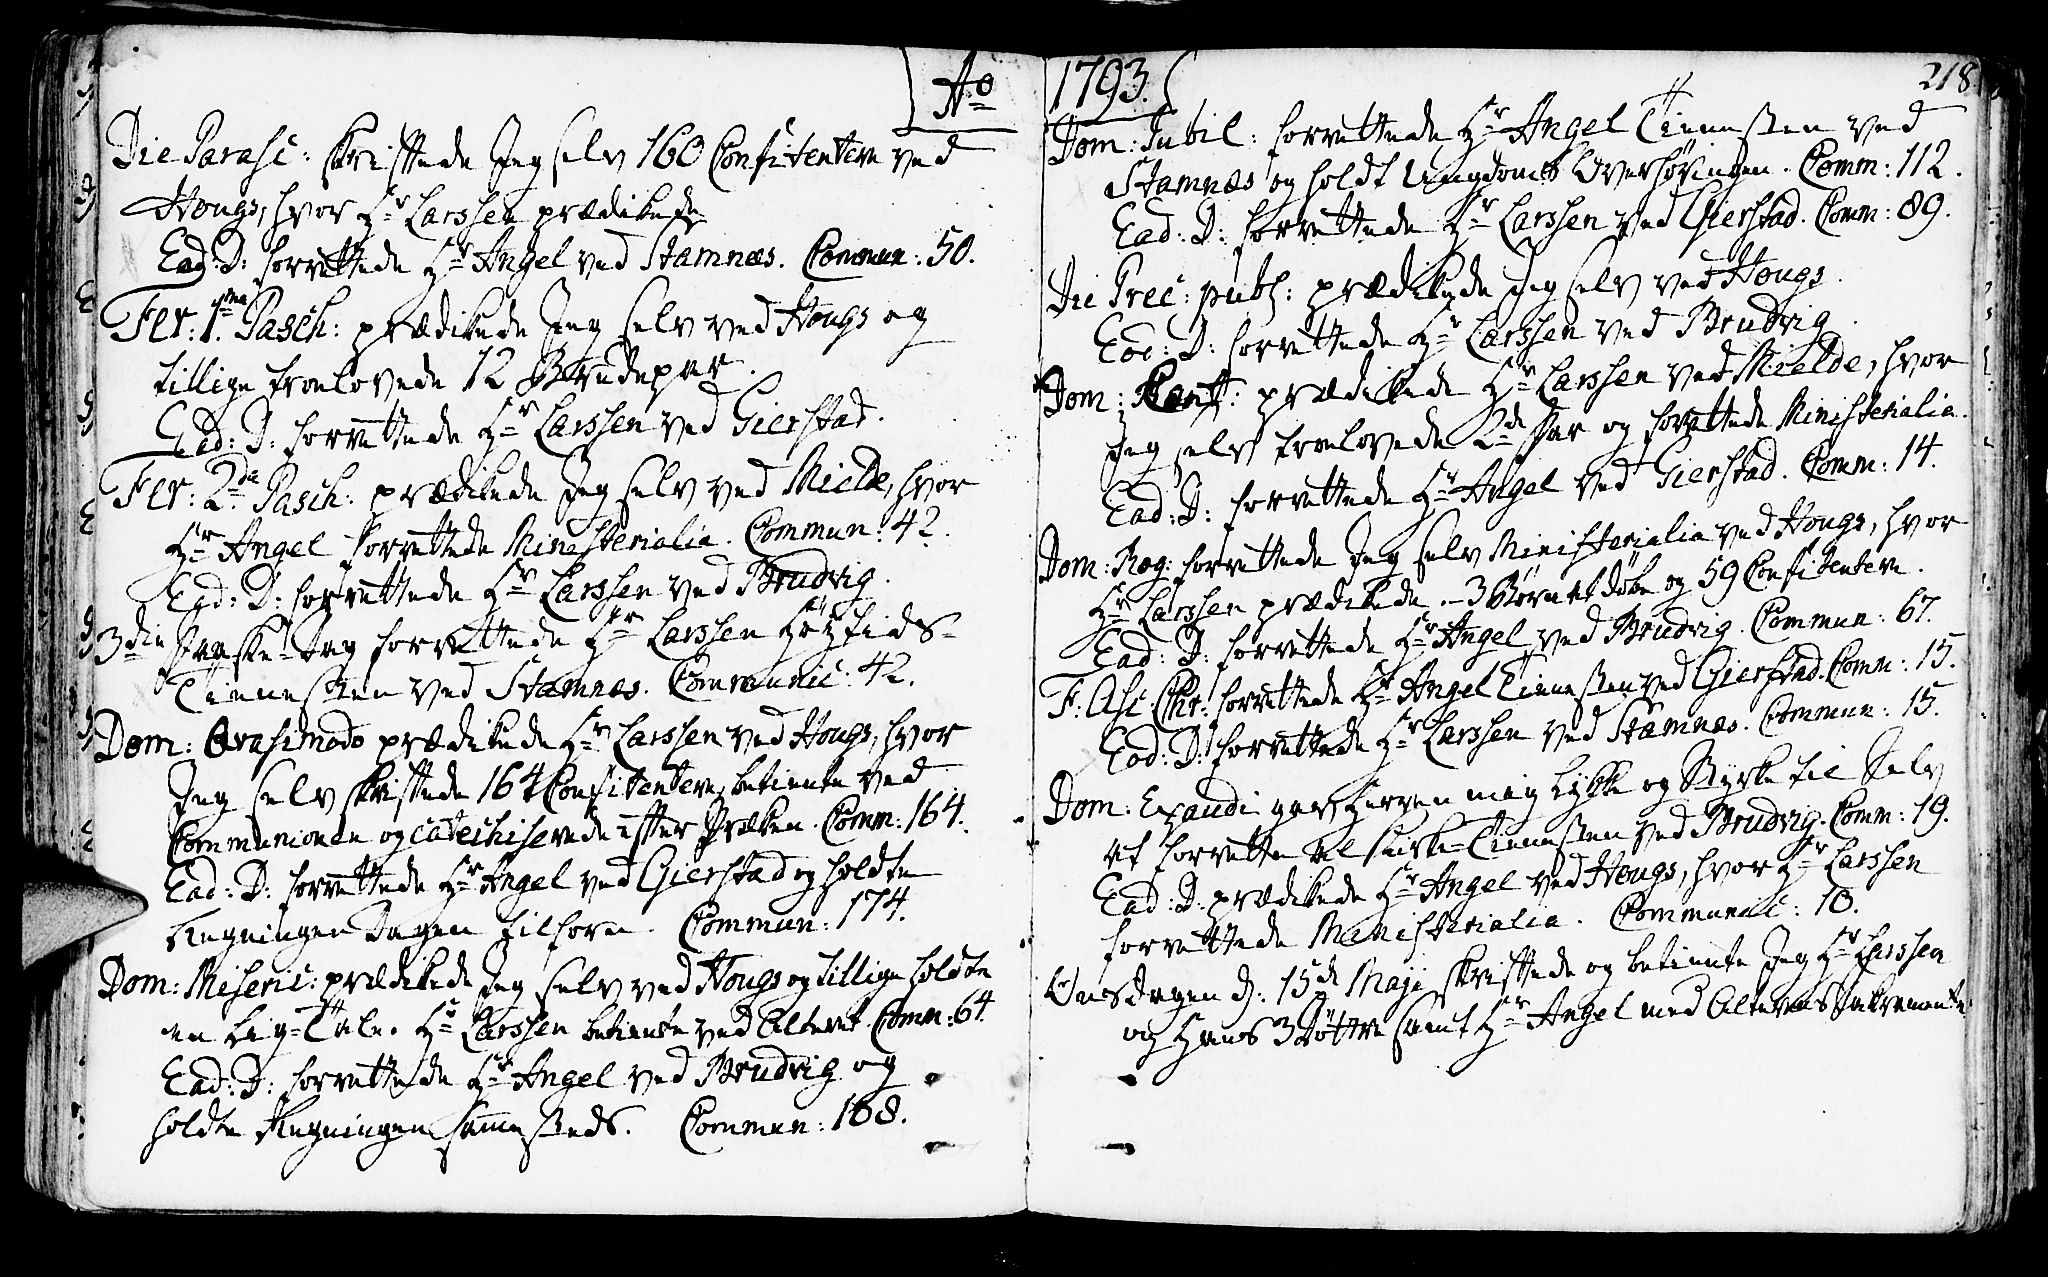 Ao
Die Parasc: skriftede Jeg selv 160 Confitentere ved
Hougs, hvor Hr Larssen prædikede
Ead: D: forrettede Hr Angel ved Stamnæs. Commun: 50.
Fer: 1ma Pasch: prædikede Jeg selv ved Hougs og
tillige troelovede 12 Brudepar.
Ead: D: forrettede Hr Larssen ved Gierstad.
Fer: 2da Pasch: prædikede Jeg selv ved Mielde, hvor
Hr Angel forrettede Ministerialia. Commun: 42.
Ead: D: forrettede Hr Larssen ved Brudvig.
3die Paaske-Dag forrettede Hr Larssen Høytids-
Tienesten ved Stamnæs. Communic: 42.
Dom: Qvasimodo prædikede Hr Larssen ved Hougs, hvor
Jeg selv skriftede 164 Confitentere, betiente ved
Communionen og catechiserede efter Præken. Comm: 164.
Ead: D: forrettede Hr Angel ved Gierstad og holdte
Regningen Dagen tilforn. Commun: 174.
Dom: Miseric: prædikede Jeg selv ved Hougs og tillige holdte
en Liig-Tale. Hr Larssen betiente ved Alteret Comm: 64.
Ead: D: forrettede Hr Angel ved Brudvig og
holdte Regningen sammesteds. Commun: 168.
1793.
218
Dom: Jubil: forrettede Hr Angel Tienesten ved
Stamnæs og holdt Ungdoms Overhøringen. Comm: 112.
Ead: D: forrettede Hr Larssen ved Gierstad. Comm: 89.
Die Prec: publ: prædikede Jeg selv ved Hougs.
Eod: D: forrettede Hr Larssen ved Brudvig.
Dom: Cant: prædikede Hr Larssen ved Mielde, hvor
Jeg selv troelovede 2de Par og forrettede Ministerialia.
Ead: D: forrettede Hr Angel ved Gierstad. Comm: 14.
Dom: Rog: forrettede Jeg selv Ministerialia ved Hougs, hvor
Hr Larssen prædikede. - 3 Børn at døbe og 59 Confitentere.
Ead: D: forrettede Hr Angel ved Brudvig. Commun: 67.
F: Asc: Chr: forrettede Hr Angel Tienesten ved Gierstad. Comm: 15.
Eod: D: forrettede Hr Larssen ved Stamnæs. Commun: 15.
Dom: Exaudi gav Herren mig Lykke og Styrke til Selv
at forrette al Kirke-Tienesten ved Brudvig. Comm: 19.
Ead: D: prædikede Hr Angel ved Hougs, hvor Hr Larssen
forrettede Ministerialia. Communic: 10.
Onsdagen d: 15de Maji skriftede og betiente Jeg Hr Larssen
og Hans 3 Døttre samt Hr Angel med Alterens Sakramente